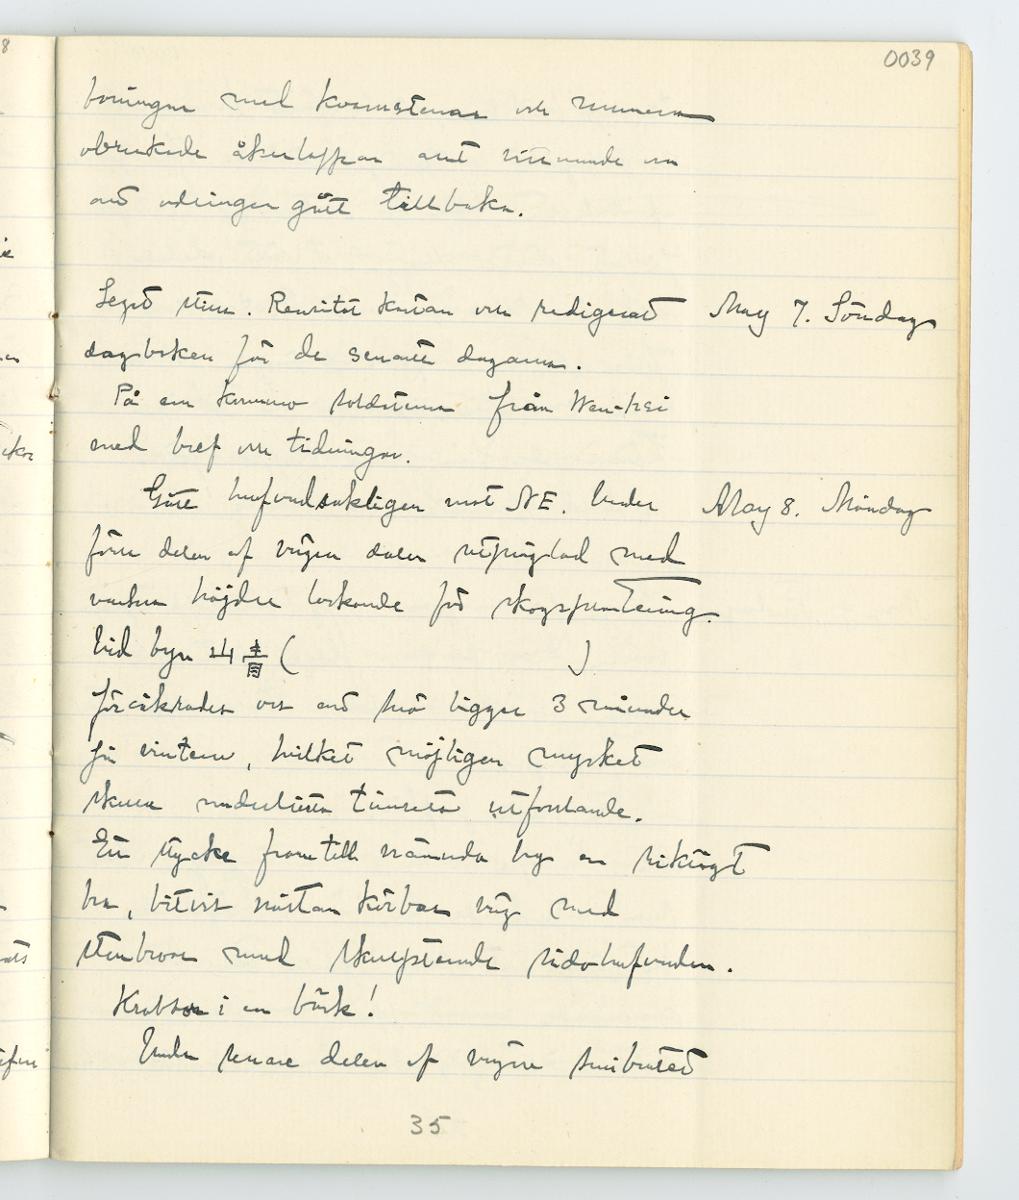 0039
med kvarnstenar och numera
obrukade åkerlappar samt
att odlingen gått tillbaka.
May 7. Söndag
Legat stilla. Renritat kartan och redigerat
dagboken för de senaste dagarna.
På em kommo soldaterna från Wen-hsi
med bref och tidningar.
May 8. Måndag
Gått hufvudsakligen mot NE. Under
förra delen af vägen dalen utpräglad med
vackra höjder lockande för skogsplantering.
Vid byn 山青 ( )
försäkrades oss att snö ligger 3 månader
på vintern, hvilket möjligen mycket
skulle underlätta timrets utforslande.
Ett stycke framtill nämnda by en riktigt
bra, bitvis nästan körbar väg med
stenbroar med skulpterade hufvuden.
Krabbor i en bäck!
Under senare delen af vägen
35